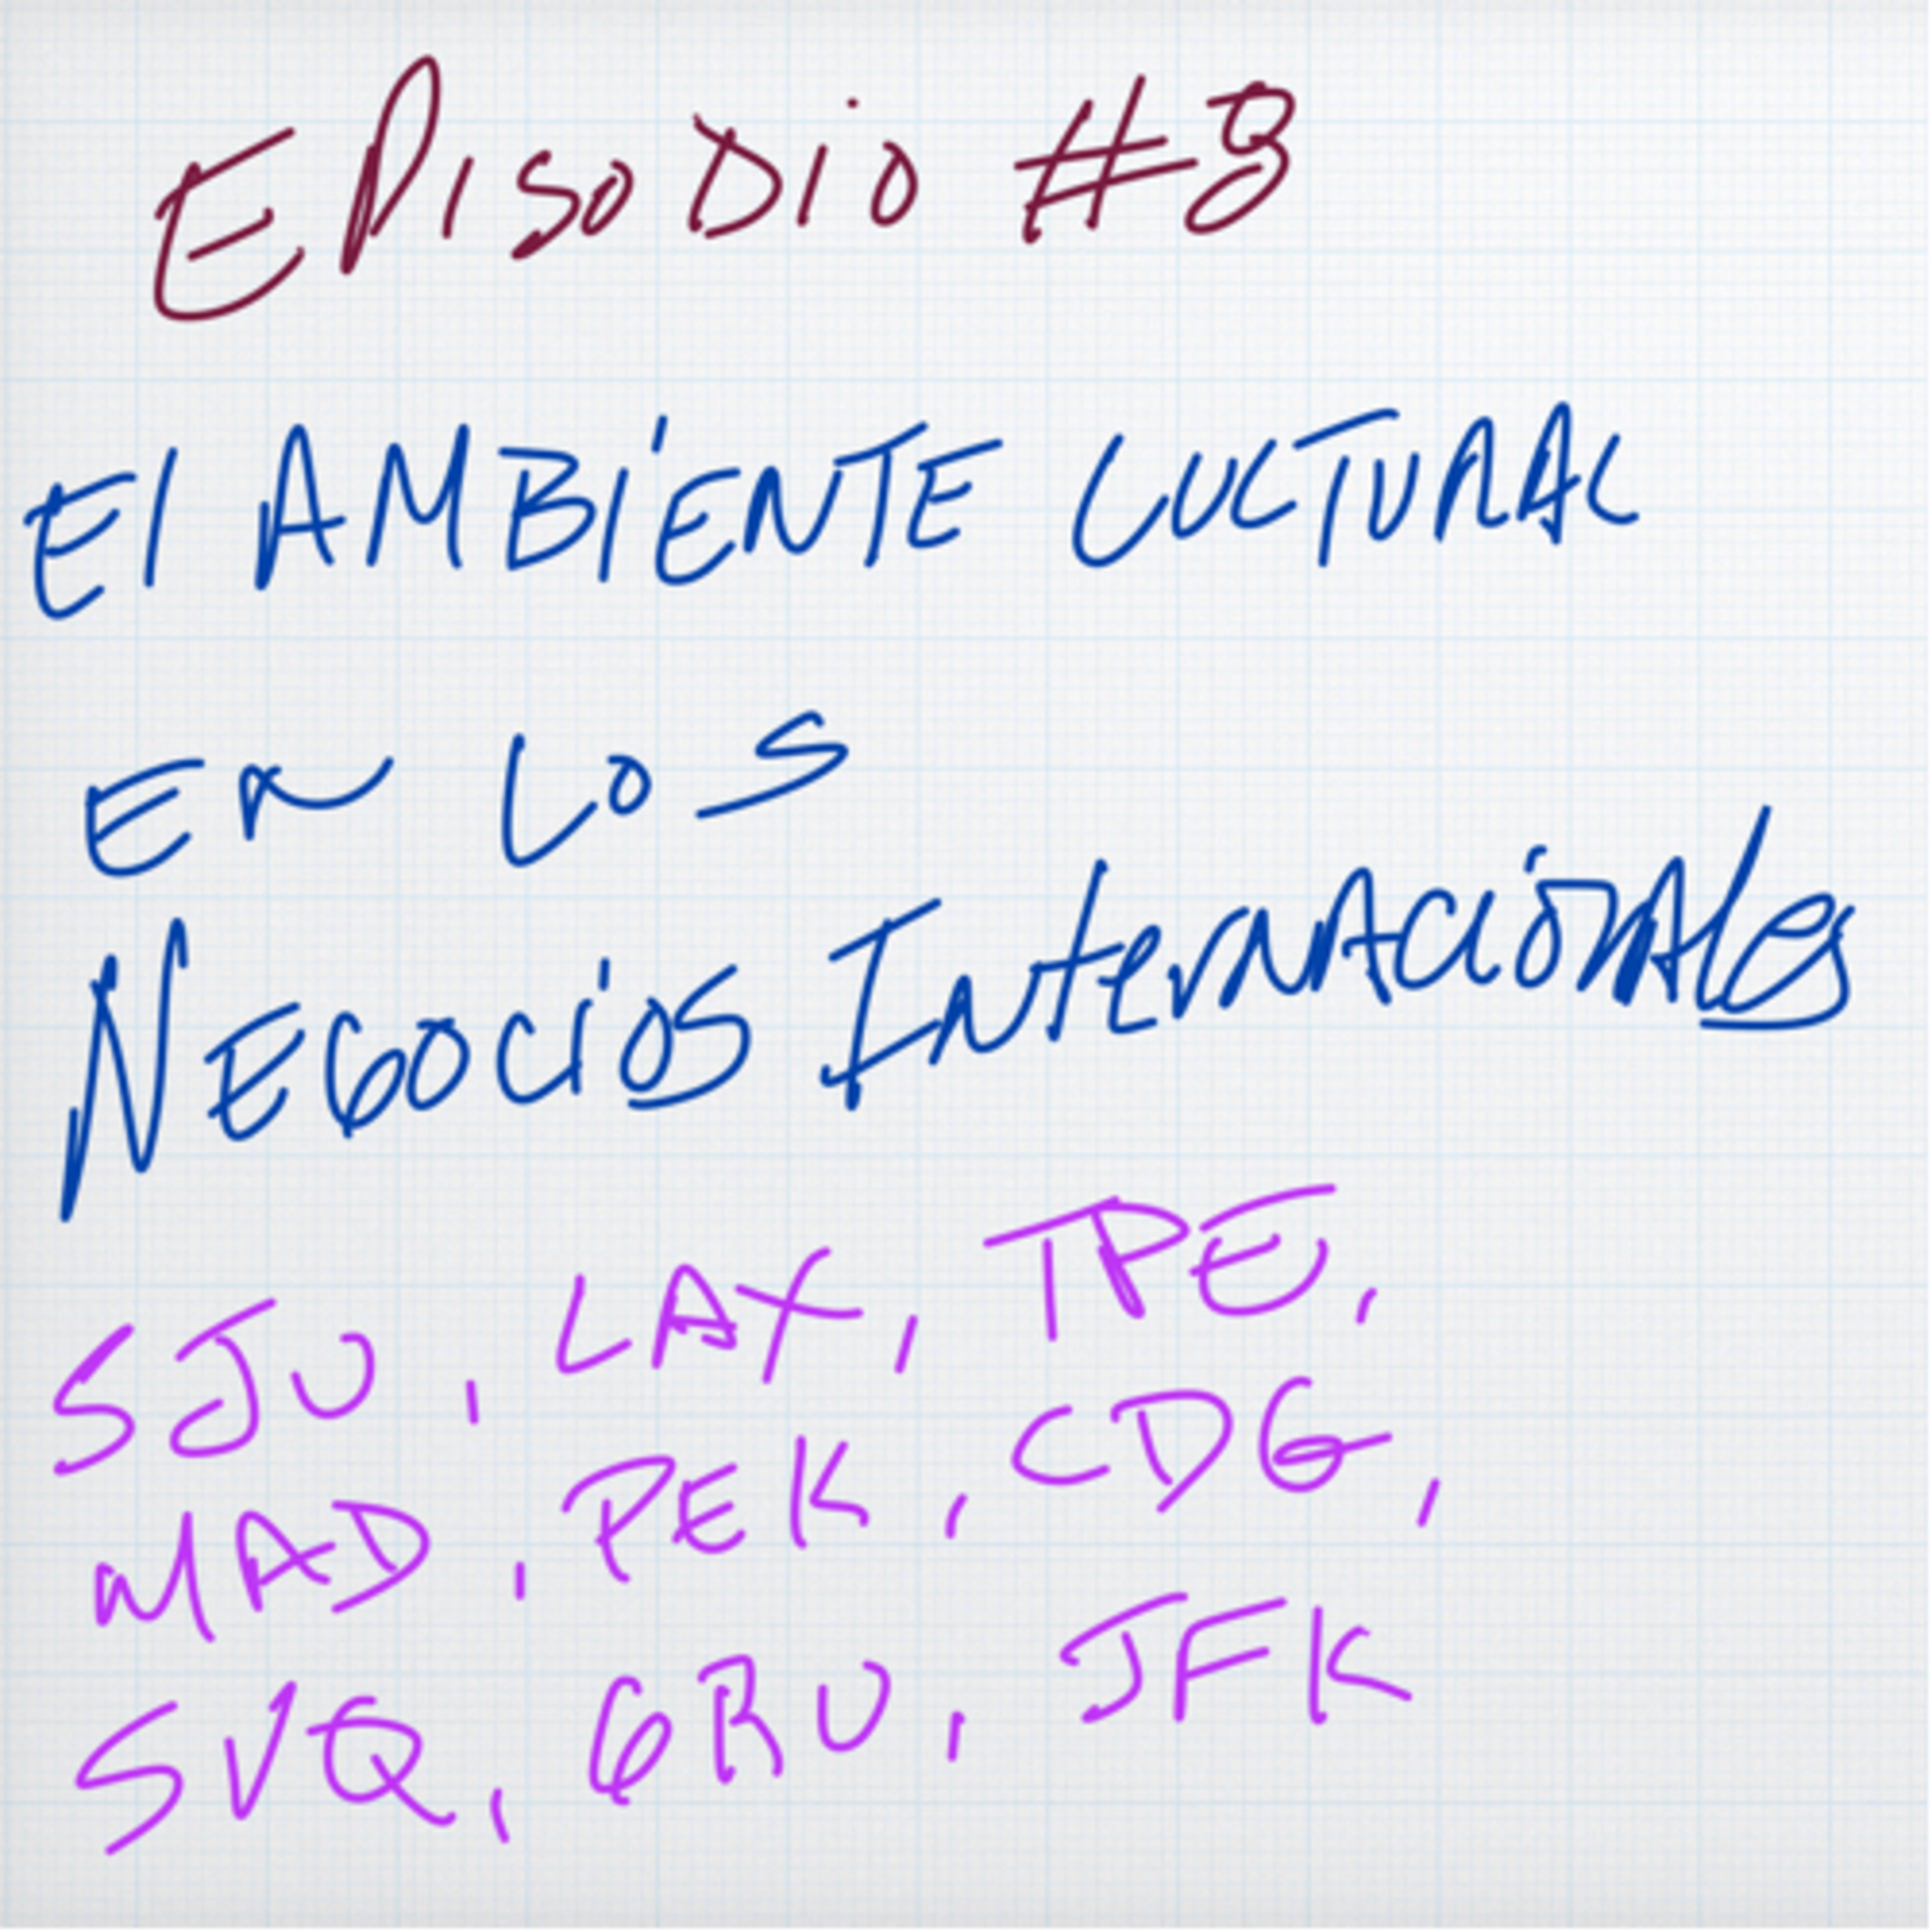 Episodio #8
El AMBiENTE CULTURAL
En Los
NEGOCiOS InternACiONAles
SJU, LAX, TPE,
MAD, PEK, CDG,
SVQ, GRU, JFK